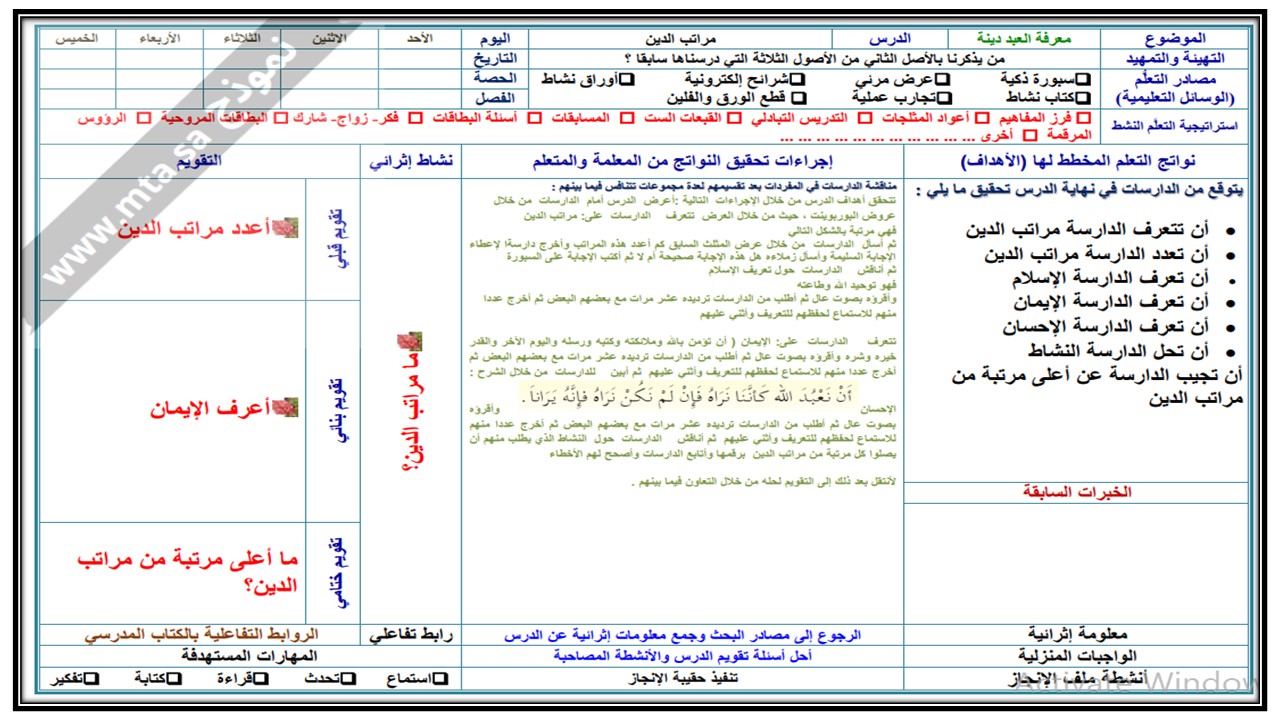 الموضوع معرفة العبد دينة الدرس مراتب الدين اليوم الأحد الاثنين الثلاثاء الأربعاء الخميس
التهيئة والتمهيد من يذكرنا بالأصل الثاني من الأصول الثلاثة التي درسناها سابقا ؟ التاريخ
مصادر التعلّم سبورة ذكية عرض مرئي شرائح إلكترونية أوراق نشاط الحصة
(الوسائل التعليمية) كتاب نشاط تجارب عملية قطع الورق والفلين الفصل
استراتيجية التعلّم النشط فرز المفاهيم أعواد المثلجات التدريس التبادلي القبعات الست المسابقات أسئلة البطاقات فكر- زواج- شارك البطاقات المروحية الرؤوس
المرقمة أخرى ... ... ... ... ... ... ... ... ... ... ...
نواتج التعلم المخطط لها (الأهداف) إجراءات تحقيق النواتج من المعلمة والمتعلم نشاط إثرائي التقويم
يتوقع من الدارسات في نهاية الدرس تحقيق ما يلي :
أن تتعرف الدارسة مراتب الدين
أن تعدد الدارسة مراتب الدين
أن تعرف الدارسة الإسلام
أن تعرف الدارسة الإيمان
أن تعرف الدارسة الإحسان
أن تحل الدارسة النشاط
أن تجيب الدارسة عن أعلى مرتبة من
مراتب الدين
الخبرات السابقة
مناقشة الدارسات في المفردات بعد تقسيمهم لعدة مجموعات تتنافس فيما بينهم :
تتحقق أهداف الدرس من خلال الإجراءات التالية :أعرض الدرس أمام الدارسات من خلال
عروض البوربوينت ، حيث من خلال العرض تتعرف الدارسات على: مراتب الدين
فهي مرتبة بالشكل التالي
ثم أسأل الدارسات من خلال عرض المثلث السابق كم أعدد هذه المراتب وأخرج دارسة! لإعطاء
الإجابة السليمة وأسأل زملاءه هل هذه الإجابة صحيحة أم لا ثم أكتب الإجابة على السبورة
ثم أناقش الدارسات حول تعريف الإسلام
فهو توحيد الله وطاعته
وأقرؤه بصوت عال ثم أطلب من الدارسات ترديده عشر مرات مع بعضهم البعض ثم أخرج عددا
منهم للاستماع لحفظهم للتعريف وأثني عليهم
تتعرف الدارسات على: الإيمان ( أن تؤمن بالله وملائكته وكتبه ورسله واليوم الآخر والقدر
خيره وشره وأقرؤه بصوت عال ثم أطلب من الدارسات ترديده عشر مرات مع بعضهم البعض ثم
أخرج عددا منهم للاستماع لحفظهم للتعريف وأثني عليهم ثم أبين للدارسات من خلال الشرح :
أَنْ تَعْبُدَ الله كَأَنَّنَا نَرَاهُ فَإِنْ لَمْ نَكُنْ نَرَاهُ فإِنَّهُ يَرَاناَ .
الإحسان وأقرؤه
بصوت عال ثم أطلب من الدارسات ترديده عشر مرات مع بعضهم البعض ثم أخرج عددا منهم
للاستماع لحفظهم للتعريف وأثني عليهم ثم أناقش الدارسات حول النشاط الذي يطلب منهم أن
يصلوا كل مرتبة من مراتب الدين برقمها وأتابع الدارسات وأصحح لهم الأخطاء
لأنتقل بعد ذلك إلى التقويم لحله من خلال التعاون فيما بينهم .
ما مراتب الدين؟
تقويم قبلي
أعدد مراتب الدين
تقويم بنائي
أعرف الإيمان
تقويم ختامي
ما أعلى مرتبة من مراتب
الدين؟
معلومة إثرائية الرجوع إلى مصادر البحث وجمع معلومات إثرائية عن الدرس رابط تفاعلي الروابط التفاعلية بالكتاب المدرسي
الواجبات المنزلية أحل أسئلة تقويم الدرس والأنشطة المصاحبة المهارات المستهدفة
أنشطة ملف الإنجاز تنفيذ حقيبة الإنجاز استماع تحدث قراءة كتابة تفكير
نموذج www.mta.sa
Activate Window